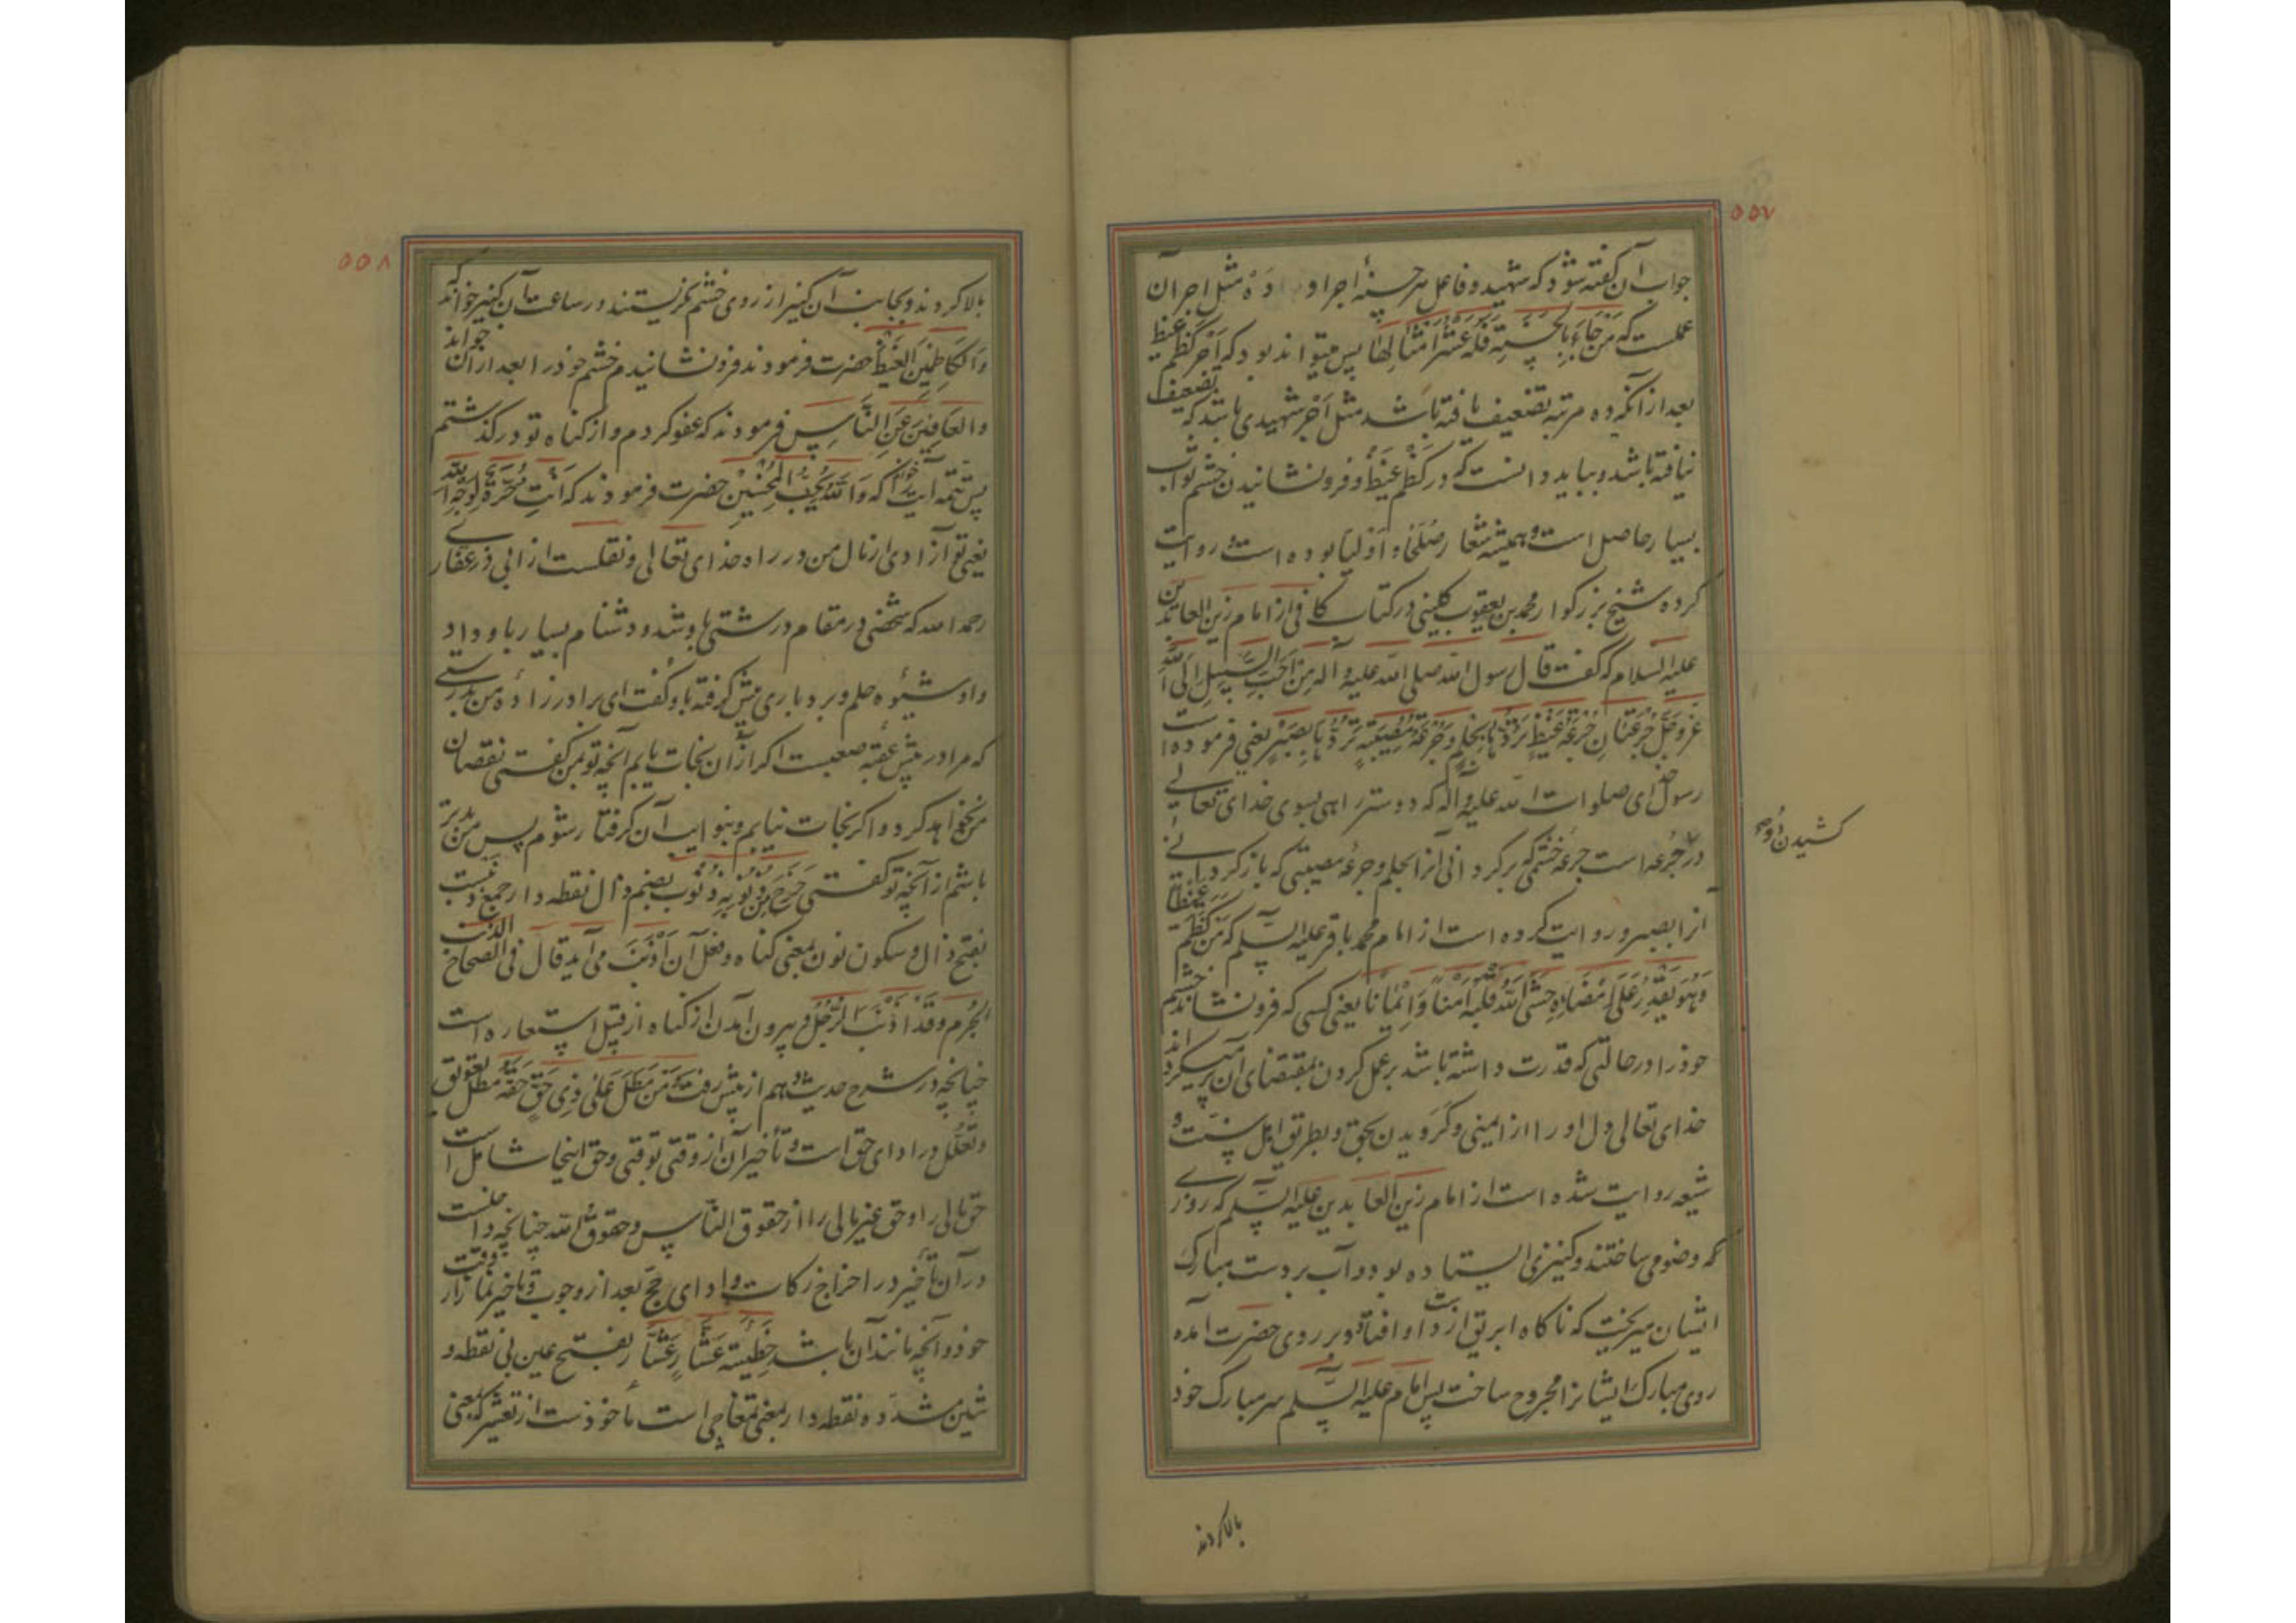 ۵۵۷
جواب آن گفته شود که شهید و فاعل هر حسنه اجر او ده مثل اجر آن
عملست که مَن جَاءَ بِالحَسَنَةِ فَلَهُ عَشْرُ اَمْثَالِهَا پس میتواند بود که اَجر کَظم غیظ
بعد از آنکه ده مرتبه تضعیف یافته باشد مثل اَجر شهیدی باشد که تضعیف
نیافته باشد و بباید دانست که در کَظم غَیظ و فرونشانیدن خشم ثواب
بسیار حاصل است و همیشه شعار صُلَحا و اَولیا بوده است و روایت
کرده شیخ بزرگوار محمد بن یعقوب کلینی در کتاب کافی از امام زین العابدین
علیه السلام که گفت قال رسول الله صلی الله علیه و آله مِن اَحَبِّ السَّبیلِ اِلَی الله
عَزَّ وَجَلَّ جُرعَتَانِ جُرعَةُ غَیظٍ تَرُدُّهَا بِحِلمٍ وَ جُرعَةُ مُصِیبَةٍ تَرُدُّهَا بِصَبرٍ یعنی فرموده است
رسول خدای صلوات الله علیه و آله که دوستر راهی بسوی خدای تعالی
دو جُرعه است جرعهٔ خشمی که برگردانی آنرا بحلم و جرعهٔ مصیبتی که بازگردانی
کشیدن دو
آنرا بصبر و روایت کرده است از امام محمد باقر علیه السلم که مَن کَظَمَ غَیظًا
وَ هُوَ یَقدِرُ عَلَی اِمضَائِهِ حَشَی اللهُ قَلبَهُ اَمنًا وَ اِیمَانًا یعنی کسی که فرونشاند خشم
خود را در حالتی که قدرت داشته باشد بر عمل کردن بمقتضای آن پر میگرداند
خدای تعالی دل او را از ایمنی و گرویدن بحق و بطریق اهل سنت و
شیعه روایت شده است از امام زین العابدین علیه السلم که روزی
که وضو می ساختند و کنیزی ایستاده بود و آب بر دست مبارک
ایشان میریخت که ناگاه ابریق از دست او افتاد و بر روی حضرت آمده
روی مبارک ایشانرا مجروح ساخت پس امام علیه السلم سر مبارک خود
بالا کردند
۵۵۸
بالا کردند و بجانب آن کنیز از روی خشم نگریستند در ساعت آن کنیز خواند که
وَالکَاظِمِینَ الغَیظَ حضرت فرمودند فرونشانیدم خشم خود را بعد از آن خواند
وَالعَافِینَ عَنِ النَّاسِ فرمودند که عفو کردم و از گناه تو درگذشتم
پس تتمه آیت خواند که وَاللهُ یُحِبُّ المُحسِنِینَ حضرت فرمودند که اَنتِ حُرَّةٌ لِوَجهِ الله
یعنی تو آزادی از مال من در راه خدای تعالی و نقلست از ابی ذر غفاری
رحمه الله که شخصی در مقام درشتی باو شد و دشنام بسیار باو داد
و او شیوه حلم و بردباری پیش گرفته باو گفت ای برادرزاده من بدرستی
که مرا در پیش عقبه صعبست اگر از آن نجات یابم آنچه تو بمن گفتی نقصان
من نخواهد کرد و اگر نجات نیابم و بنوایب آن گرفتار شوم پس من بدتر
باشم از آنچه تو گفتی خَرَجَ مِن ذُنُوبِهِ ذُنُوب بضم ذال نقطه دار جمع ذنب است
بفتح ذال و سکون نون بمعنی گناه و فعل آن اَذنَبَ می آید قال فی الصحاح الذنب
الجُرم و قد اَذنَبَ الرَّجُل و بیرون آمدن از گناه از قبیل استعاره است
چنانچه در شرح حدیث دهم از پیش رفت مَن مَطَلَ عَلَی ذِی حَقٍّ حَقَّهُ مَطل تعویق
و تَعَلُّل در ادای حق است و تأخیر آن از وقتی توقتی و حق اینجا شامل است
حق مالی را و حق غیر مالی را از حقوق الناس و حقوق الله چنانچه داخلست
در آن تأخیر در اخراج زکات و ادای حج بعد از وجوب و تأخیر نماز از وقت
خود و آنچه مانند آن باشد خَطِیئَة عَشَّارٍ عَشَّار بفتح عین بی نقطه و
شین مشدّده نقطه دار بمعنی تمغاچی است مأخوذست از تعشیر که بمعنی